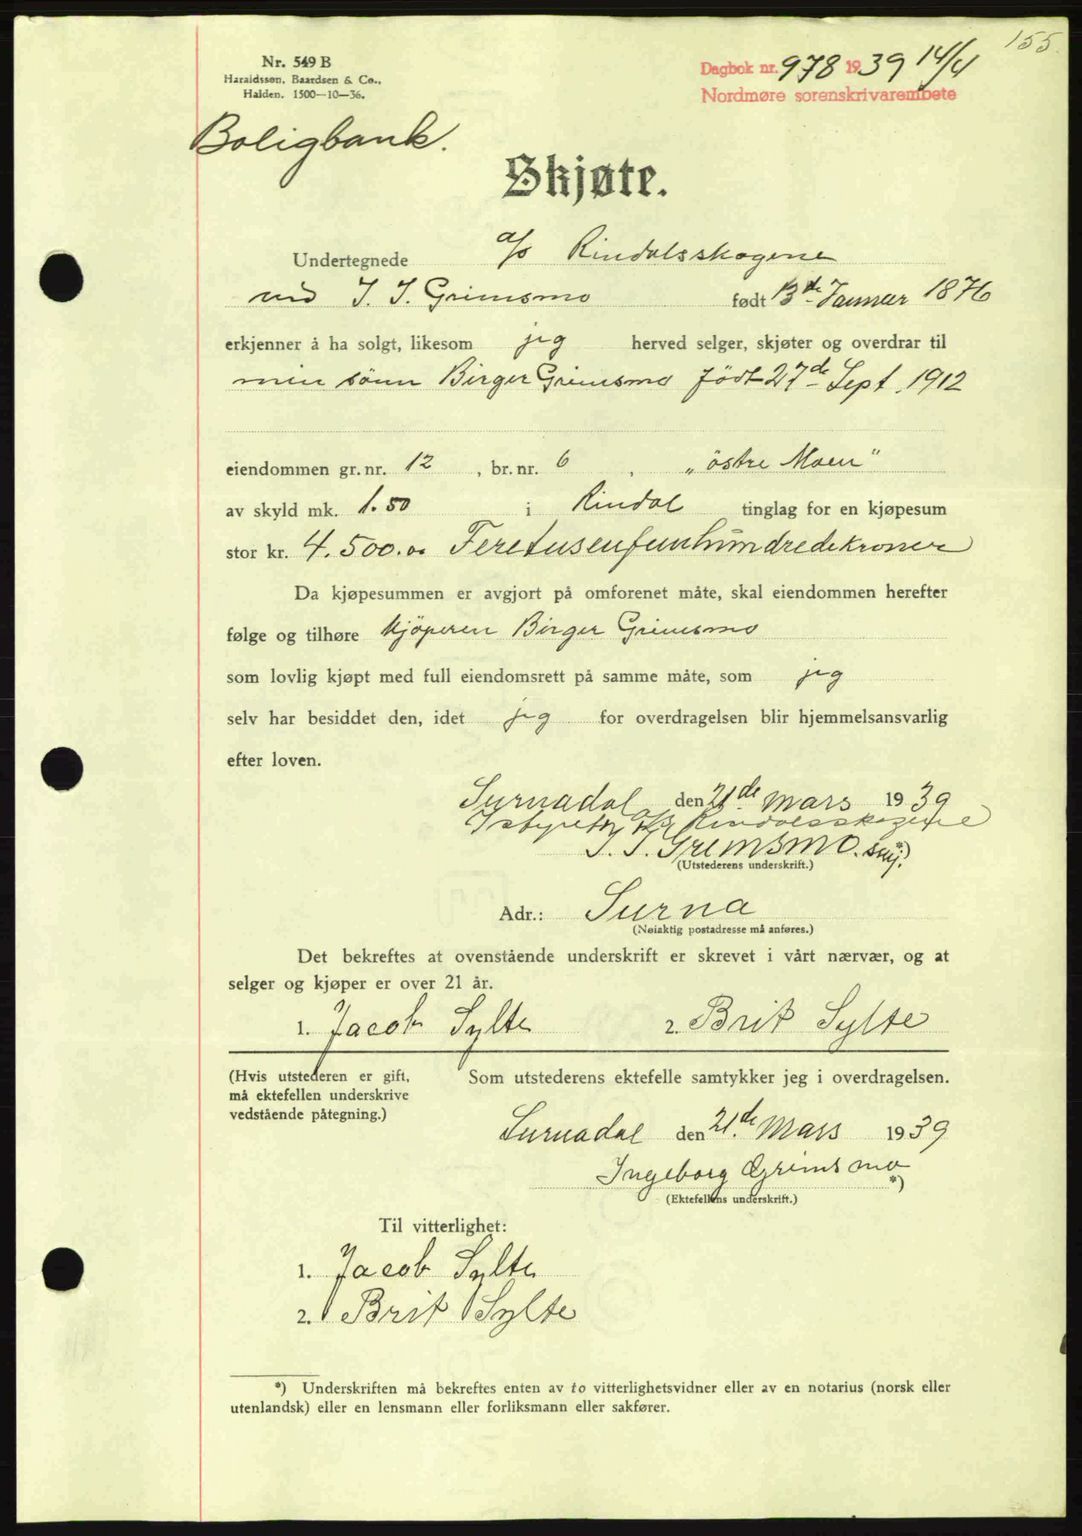 155.
Nr. 549 B
Haraldssøn, Baardsen & Co.,
Halden. 1500—10—36.
Dagbok nr. 978 1939 14/4
Nordmøre sorenskrivarembete
Boligbank.
Skjøte.
Undertegnede a/s Rindalsskogene
ved I. I. Grimsmo født 13de Januar 1876
erkjenner å ha solgt, likesom jeg herved selger, skjøter og overdrar til
min sönn Birger Grimsmo födt 27de Sept. 1912
eiendommen gr. nr. 12, br. nr. 6, „östre Moen”
av skyld mk. 1.50 i Rindal tinglag for en kjøpesum
stor kr. 4.500.00 Firetusenfemhundredekroner
Da kjøpesummen er avgjort på omforenet måte, skal eiendommen herefter
følge og tilhøre kjöperen Birger Grimsmo
som lovlig kjøpt med full eiendomsrett på samme måte, som jeg
selv har besiddet den, idet jeg for overdragelsen blir hjemmelsansvarlig
efter loven.
Surnadal den 21de mars 1939
I styret for a/s Rindalsskogene
I. I. Grimsmo. *)
(Utstederens underskrift.)
Adr.: Surna
(Nøiaktig postadresse må anføres.)
Det bekreftes at ovenstående underskrift er skrevet i vårt nærvær, og at
selger og kjøper er over 21 år.
1. Jacob Sylte 2. Brit Sylte
(Hvis utstederen er gift,
må ektefellen underskrive
vedstående påtegning.)
Som utstederens ektefelle samtykker jeg i overdragelsen.
Surnadal den 21.de Mars 1939
Ingeborg Grimsmo *)
(Ektefellens underskrift.)
Til vitterlighet:
1. Jacob Sylte
2. Brit Sylte
*) Underskriften må bekreftes enten av to vitterlighetsvidner eller av en notarius (norsk eller
utenlandsk) eller en lensmann eller forliksmann eller sakfører.